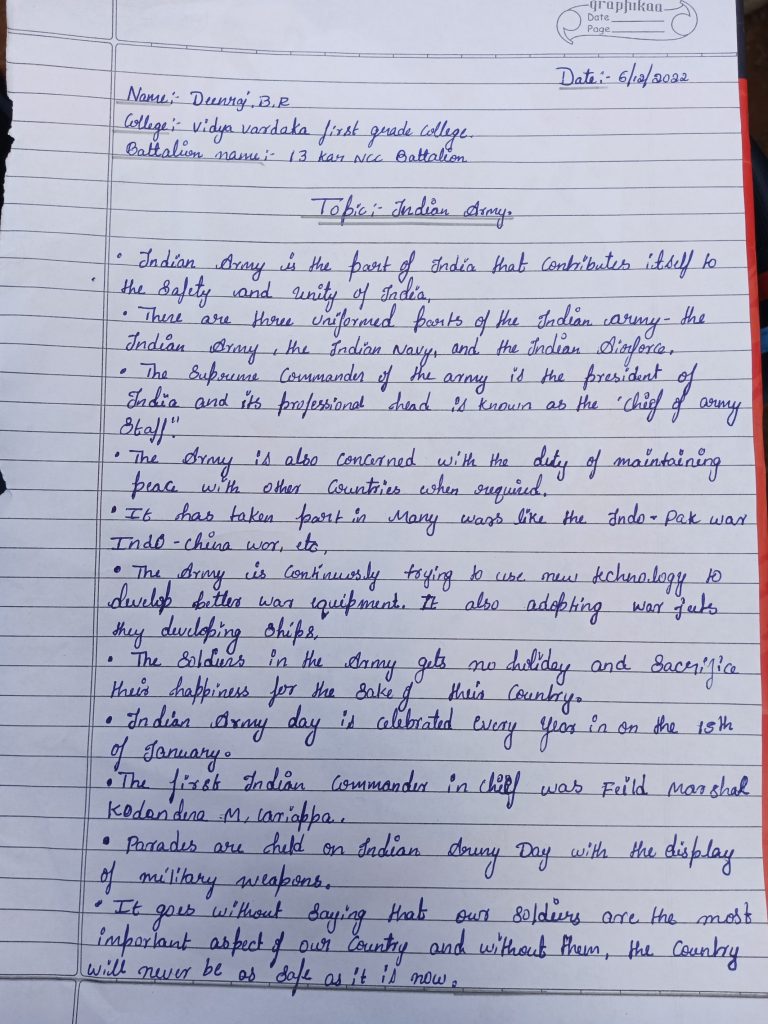 graphikaa
Date
Page
Date:- 6/12/2022
Name:- Deenraj.B.R
College:- Vidya Vardaka first grade College.
Battalion name:- 13 Kar NCC Battalion
Topic:- Indian Army.
• Indian Army is the part of India that contributes itself to
the Safety and unity of India.
• There are three uniformed parts of the Indian army- the
Indian Army, the Indian Navy, and the Indian Airforce.
• The Supreme Commander of the army is the president of
India and its professional head is known as the 'Chief of army
Staff."
• The Army is also concerned with the duty of maintaining
peace with other Countries when required.
• It has taken part in Many wars like the Indo-Pak war
Indo-China wor, etc,
• The Army is Continuosly trying to use new technology to
develop better war equipment. It also adopting war jets
they developing Ships,
• The Soldiers in the Army gets no holiday and Sacrifice
their happiness for the Sake of their Country.
• Indian Army day is celebrated every year in on the 15th
of January.
• The first Indian Commander in Chief was Feild Marshal
Kodandena M, Cariappa.
• Parades are held on Indian Army Day with the display
of military weapons.
• It goes without Saying that our Soldiers are the most
important aspect of our Country and without them, the Country
will never be as Safe as it is now.